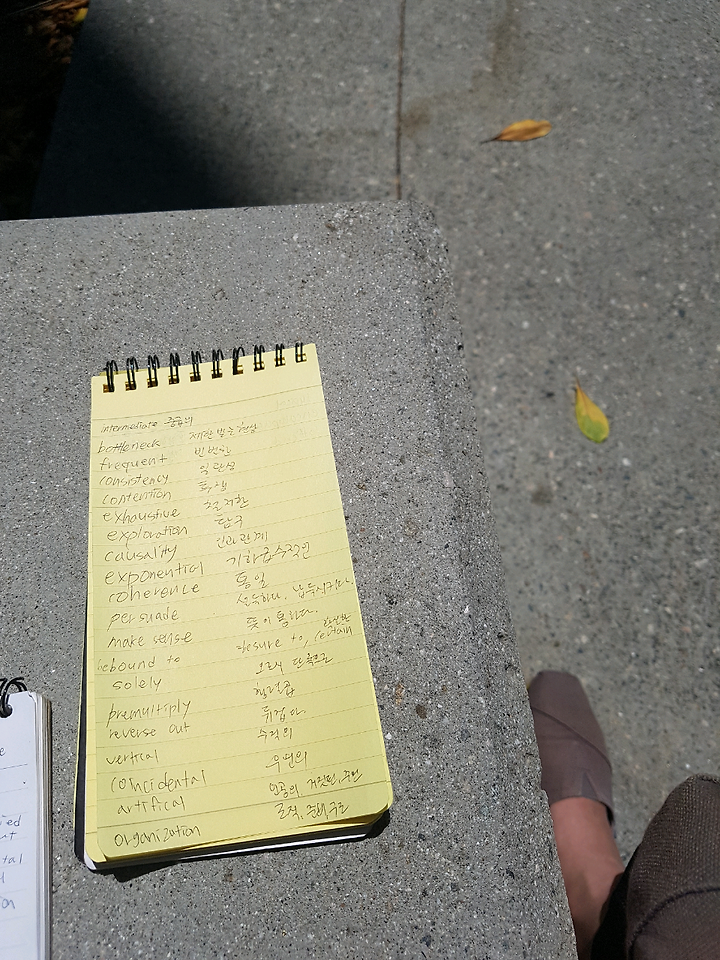 intermediate 중급의
bottleneck 제한 받는 현상
frequent 빈번한
consistency 일관성
contention 투쟁
exhaustive 철저한
exploration 탐구
causality 인과관계
exponential 기하급수적인
coherence 통일
persuade 설득하다. 납득시키다.
make sense 뜻이 통하다.
bebound to desure to, certain 확실한
solely 오로지 단독으로
premultiply 행렬곱
reverse out 뒤집다.
vertical 수직의
coincidental 우연의
artifical 인공의 거짓된,
organization 조직,